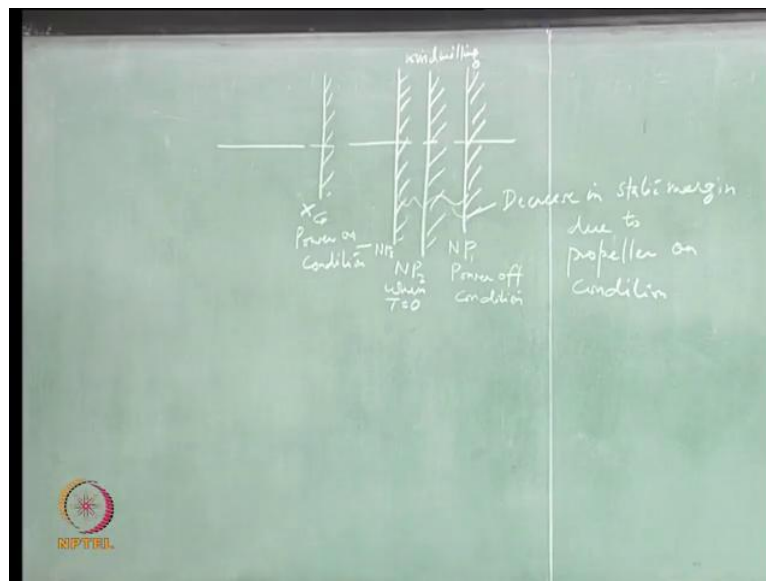 windmilling
X_CG
Power on
Condition
NP₃
NP₂
when
T=0
NP₁
Power off
Condition
Decrease in static margin
due to
propeller on
Condition
NPTEL